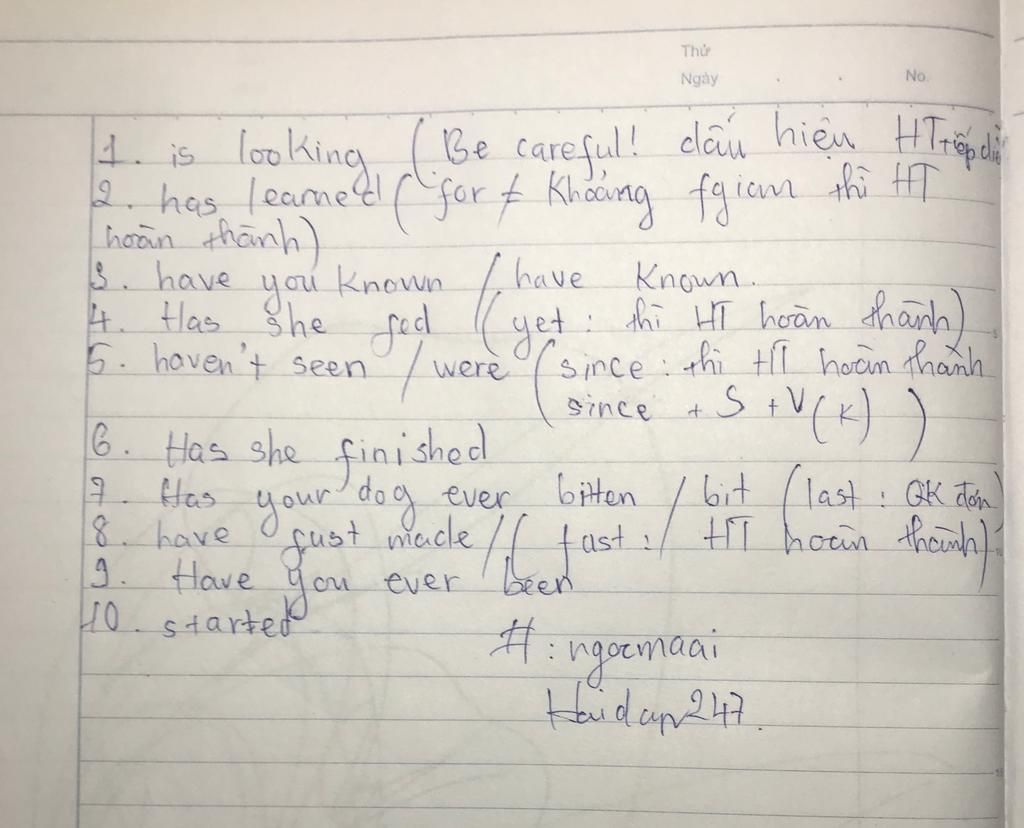 Thứ
Ngày . . No.
1. is looking (Be careful! dấu hiệu HT tiếp diễ
2. has learned (for + Khoảng tgian thì HT
hoàn thành)
3. have you known / have known.
4. Has she fed (yet : thì HT hoàn thành)
5. haven't seen / were (since : thì HT hoàn thành
since + S + V(K) )
6. Has she finished
7. Has your dog ever bitten / bit (last : QK đơn)
8. have just made / ( just : / HT hoàn thành)
9. Have you ever been
10. started
# : ngocmaai
Hoidap247.